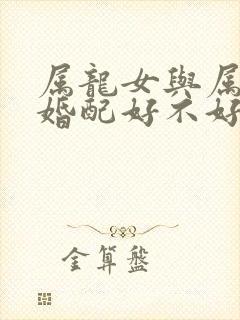 属龍女與属
婚配好不好
金算盤